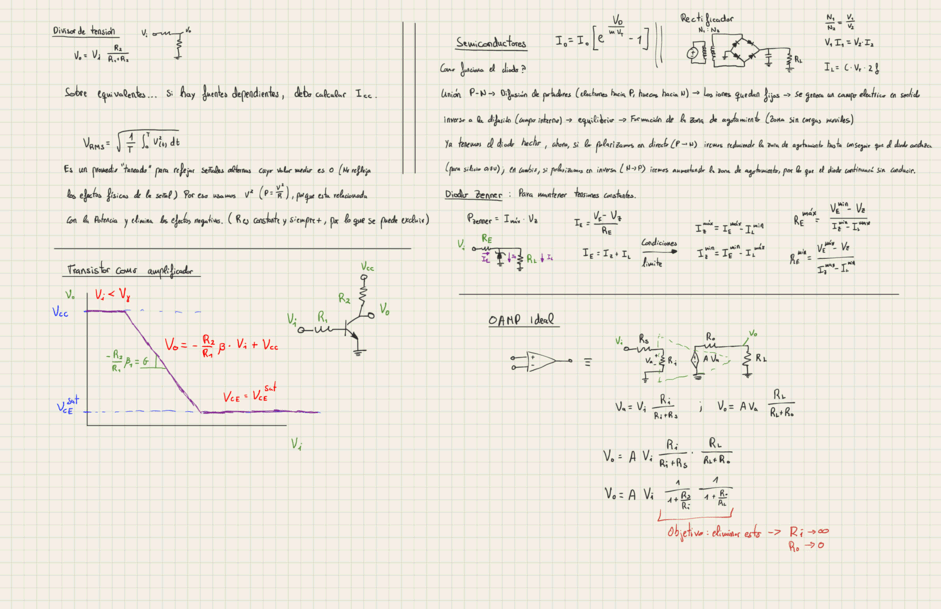 Divisor de tensión
Vi
Vo
Vo = Vi R2 / (R1+R2)
Sobre equivalentes... Si hay fuentes dependientes, debo calcular Icc.
VRMS = √(1/T ∫₀ᵀ V²(t) dt)
Es un promedio "tuneado" para reflejar señales alternas cuyo valor medio es 0 (No refleja
los efectos físicos de la señal) Por eso usamos V² (P = V²/R), porque esta relacionado
con la Potencia y elimina los efectos negativos. (R es constante y siempre +, por lo que se puede excluir)
Transistor como amplificador
Vo
Vi < Vγ
Vcc
Vo = - R2/R1 β · Vi + Vcc
- R2/R1 β = G
VCE = VCE sat
VCE sat
Vi
Vcc
R2
R1
Vi
Vo
Semiconductores
Io = Io [e^(VD / m VT) - 1]
Rectificador
N1 : N2
RL
N1/N2 = V1/V2
V1 I1 = V2 · I2
IL = C · Vr · 2f
Como funciona el diodo?
Unión P-N → Difusión de portadores (electrones hacia P, huecos hacia N) → Los iones quedan fijos → Se genera un campo electrico en sentido
inverso a la difusión (campo interno) → equilibrio → Formación de la zona de agotamiento (zona sin cargas moviles)
Ya tenemos el diodo hecho, ahora, si lo polarizamos en directo (P → N) iremos reduciendo la zona de agotamiento hasta conseguir que el diodo conduzca
(para silicio 0.7V); en cambio, si polarizamos en inversa (N → P) iremos aumentando la zona de agotamiento, por lo que el diodo continuará sin conducir.
Diodos Zenner : Para mantener tensiones constantes.
Pzenner = Imáx · Vz
Vi
RE
IE
Iz
RL
IL
IE = (VE - VZ) / RE
IE = Iz + IL
Condiciones
limite
Iz máx = IE máx - IL min
Iz min = IE min - IL máx
RE máx = (VE min - VZ) / (Iz min - IL max)
RE min = (VE máx - VZ) / (Iz max - IL min)
OAMP ideal
=
Vi
Rs
Va
Ri
Ro
A Va
Vo
RL
Va = Vi Ri / (Ri+Rs) ; Vo = A Va RL / (RL+Ro)
Vo = A Vi Ri / (Ri+Rs) · RL / (RL+Ro)
Vo = A Vi 1 / (1+Rs/Ri) · 1 / (1+Ro/RL)
Objetivo: eliminar esto → Ri → ∞
Ro → 0